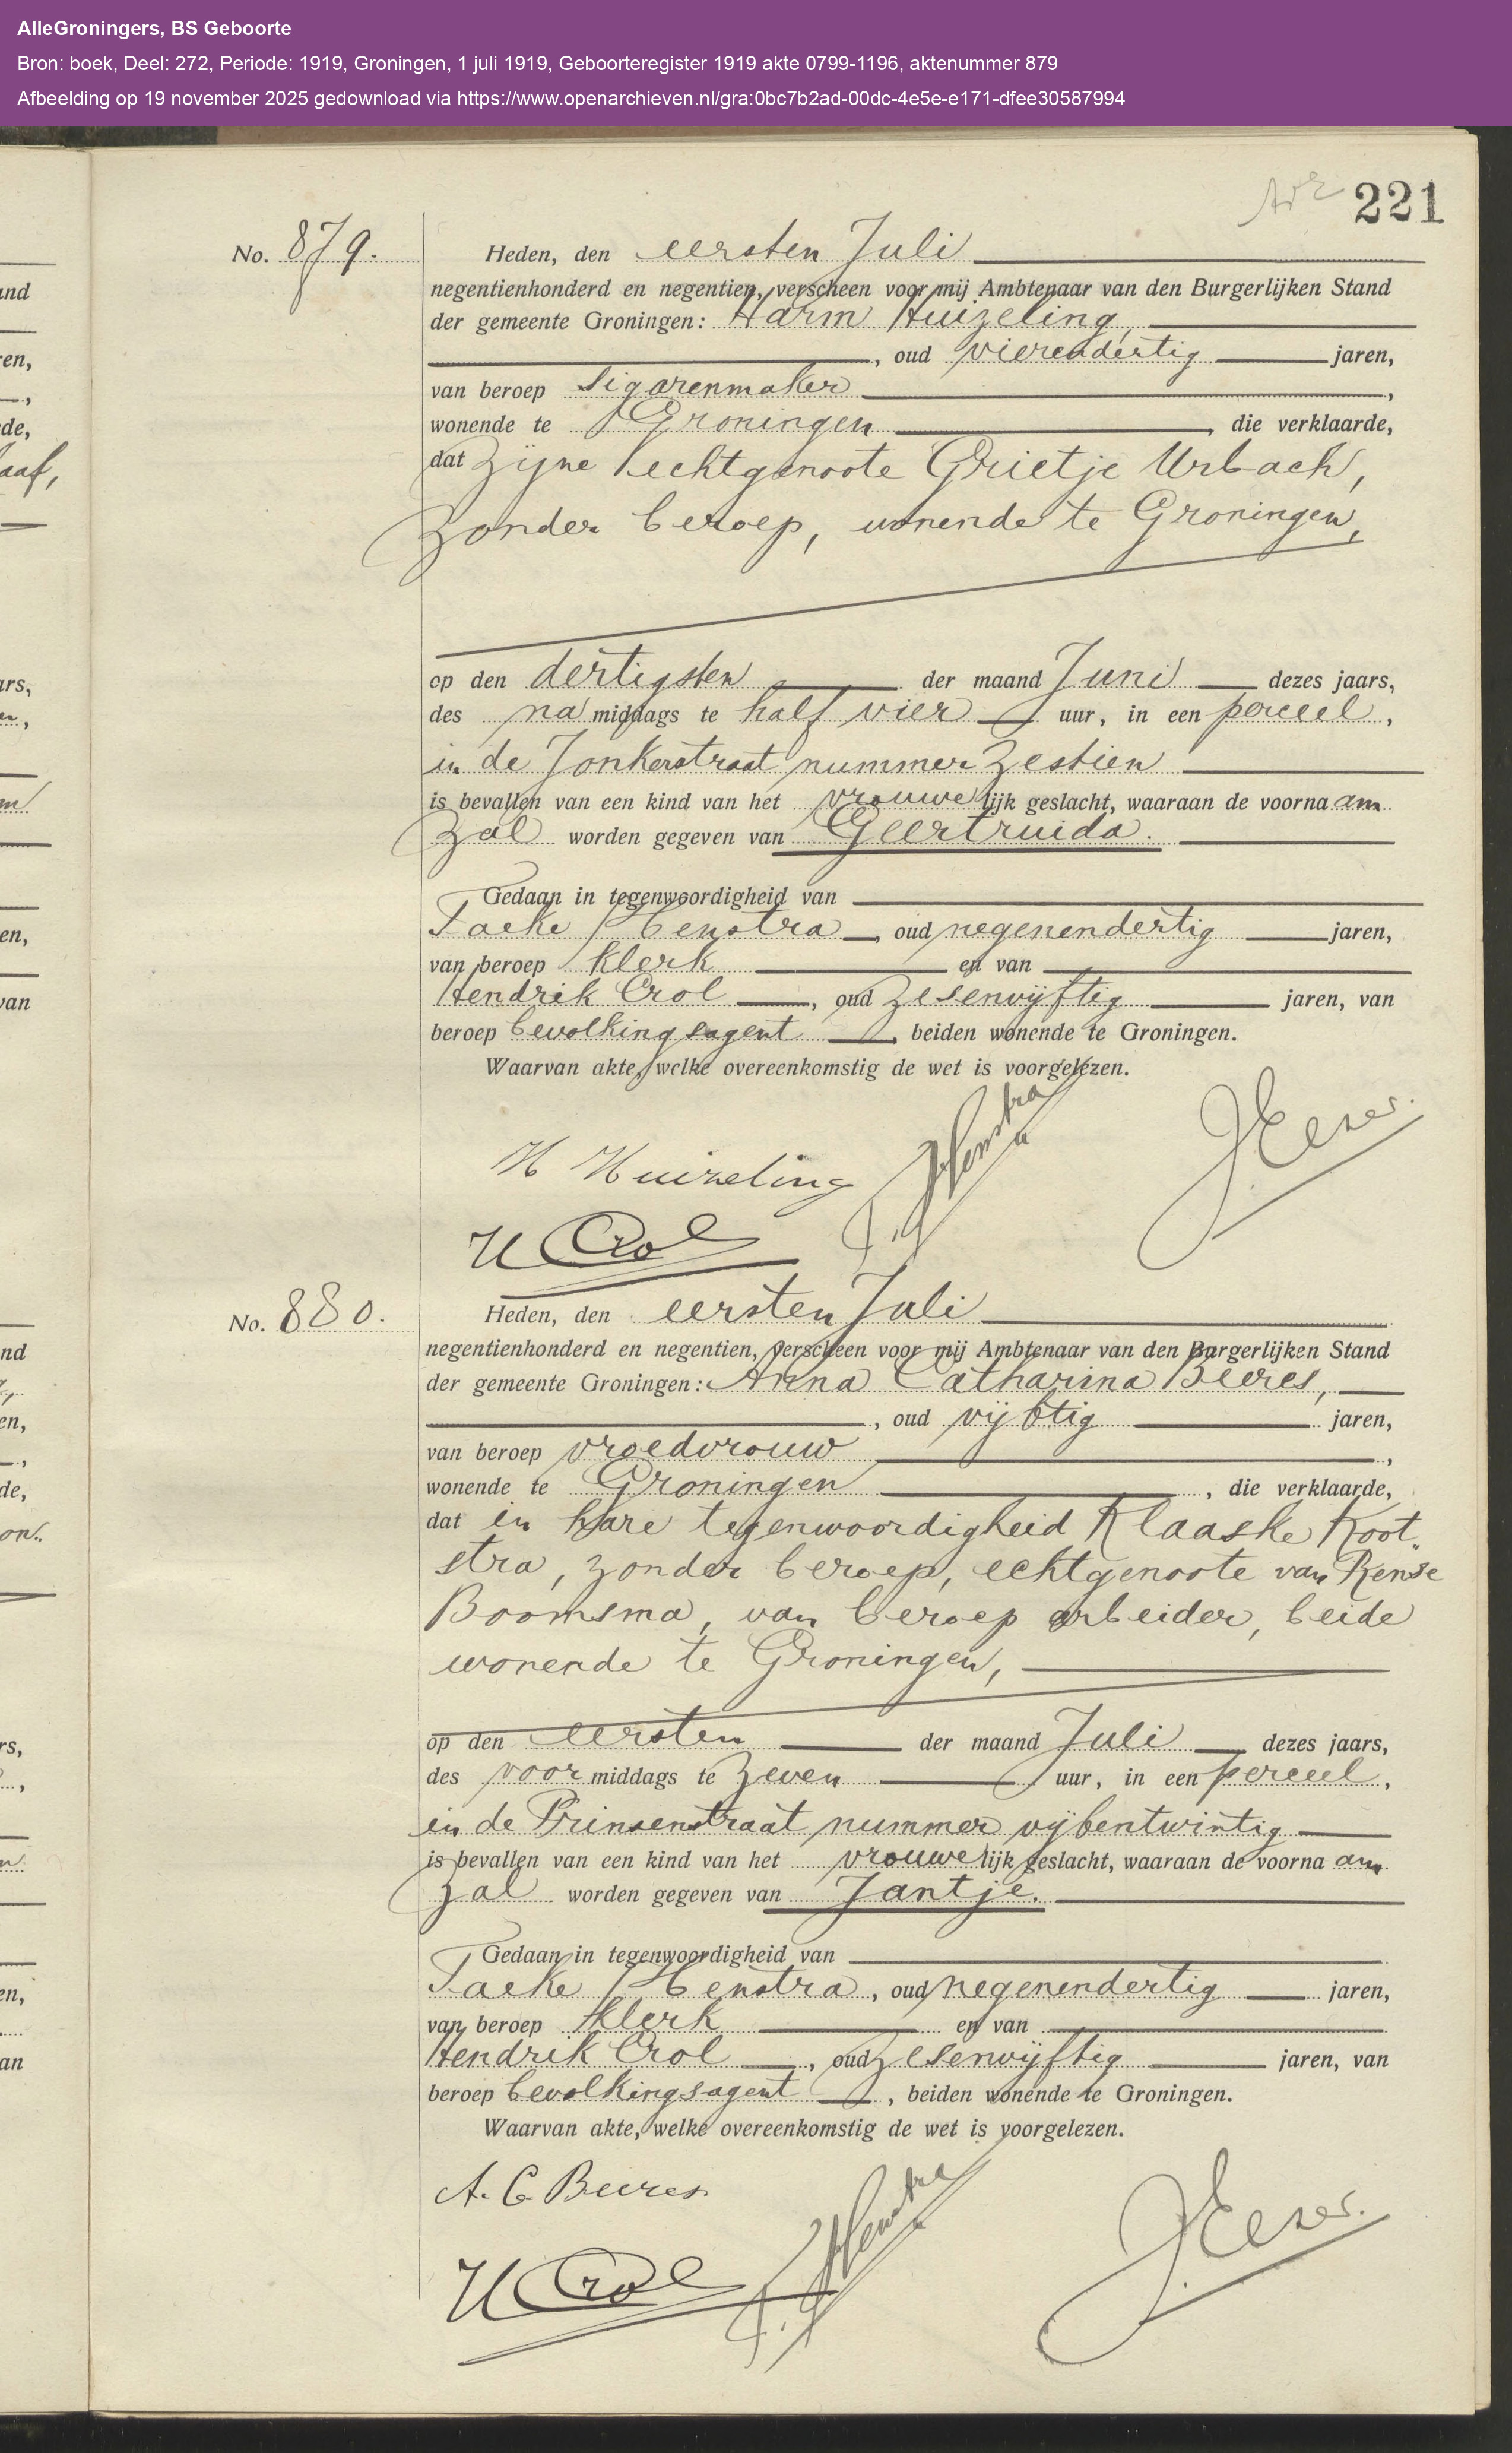 AlleGroningers, BS Geboorte
Bron: boek, Deel: 272, Periode: 1919, Groningen, 1 juli 1919, Geboorteregister 1919 akte 0799-1196, aktenummer 879
Afbeelding op 19 november 2025 gedownload via https://www.openarchieven.nl/gra:0bc7b2ad-00dc-4e5e-e171-dfee30587994
221
No. 879.
Heden, den eersten Juli
negentienhonderd en negentien, verscheen voor mij Ambtenaar van den Burgerlijken Stand
der gemeente Groningen: Harm Huizeling,
, oud vierendertig jaren,
van beroep sigarenmaker,
wonende te Groningen, die verklaarde,
dat zijne echtgenoote Grietje Urbach,
zonder beroep, wonende te Groningen,
op den dertigsten der maand Juni dezes jaars,
des namiddags te half vier uur, in een perceel,
in de Jonkerstraat nummer zestien
is bevallen van een kind van het vrouwelijk geslacht, waaraan de voornaam
zal worden gegeven van Geertruida.
Gedaan in tegenwoordigheid van
Taeke Henstra, oud negenendertig jaren,
van beroep klerk en van
Hendrik Crol, oud zesenvijftig jaren, van
beroep bevolkingsagent, beiden wonende te Groningen.
Waarvan akte, welke overeenkomstig de wet is voorgelezen.
H Huizeling
H Crol
No. 880.
Heden, den eersten Juli
negentienhonderd en negentien, verscheen voor mij Ambtenaar van den Burgerlijken Stand
der gemeente Groningen: Anna Catharina Beeres,
, oud vijftig jaren,
van beroep vroedvrouw,
wonende te Groningen, die verklaarde,
dat in hare tegenwoordigheid Klaaske Koot„
stra, zonder beroep, echtgenoote van Rense
Boomsma, van beroep arbeider, beide
wonende te Groningen,
op den eersten der maand Juli dezes jaars,
des voormiddags te zeven uur, in een perceel,
in de Prinsenstraat nummer vijfentwintig
is bevallen van een kind van het vrouwelijk geslacht, waaraan de voornaam
zal worden gegeven van Jantje.
Gedaan in tegenwoordigheid van
Taeke Henstra, oud negenendertig jaren,
van beroep klerk en van
Hendrik Crol, oud zesenvijftig jaren, van
beroep bevolkingsagent, beiden wonende te Groningen.
Waarvan akte, welke overeenkomstig de wet is voorgelezen.
A. C. Beeres
H Crol